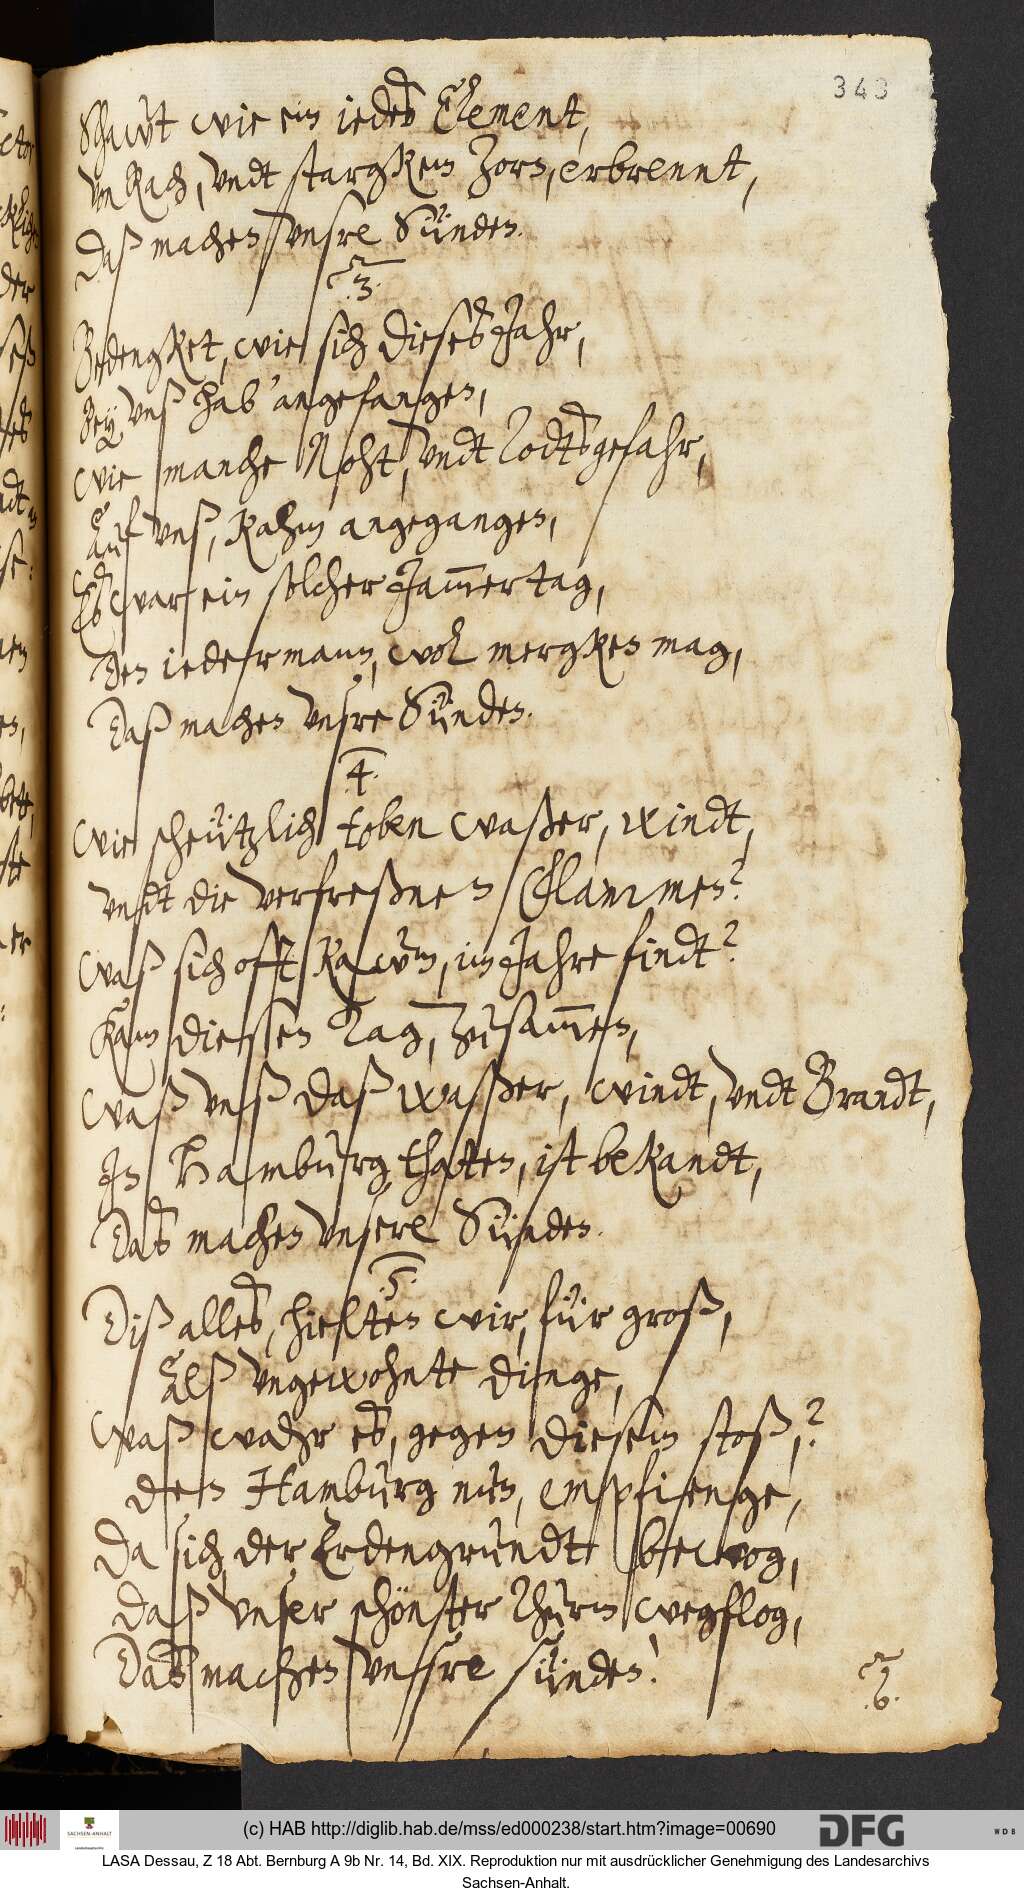 343
Schawt wie ein iedes Element,
Von Rach, vndt stargkem Zorn, erbrennt,
Daß machen vnsre Sünden.
.3.
Bedengket, wie sich dieses Jahr,
Bey vnß hab' angefangen,
wie manche Noht, vndt Todtsgefahr,
Auf vnß, kahm angegangen,
Es war ein solcher Jam̅ertag,
Den iederman̅, wol mergken mag,
Daß machen vnsre Sünden.
.4.
Wie scheützlich toben waßer, windt,
vndt die verfreßnen Flammen?
Waß sich offt kawm, im Jahre findt?
Kam diessen Tag, zusam̅en,
Waß vnß daß waßer, windt, vndt Brandt,
In Hamburg thaten, ist bekandt,
Das machen vnsere Sünden.
.5.
Diß alles, hielten wir, für groß,
Alß vngewohnte dinge,
Waß wahr es, gegen diesem stoß,?
den Hamburg nun, empfienge,
Da sich der Erdengrundt bewog,
Daß vnser schönster Thurm wegflog,
Das machen vnsre sünden!
.6.
(c) HAB http://diglib.hab.de/mss/ed000238/start.htm?image=00690
SACHSEN-ANHALT
DFG
WDB
LASA Dessau, Z 18 Abt. Bernburg A 9b Nr. 14, Bd. XIX. Reproduktion nur mit ausdrücklicher Genehmigung des Landesarchivs
Sachsen-Anhalt.